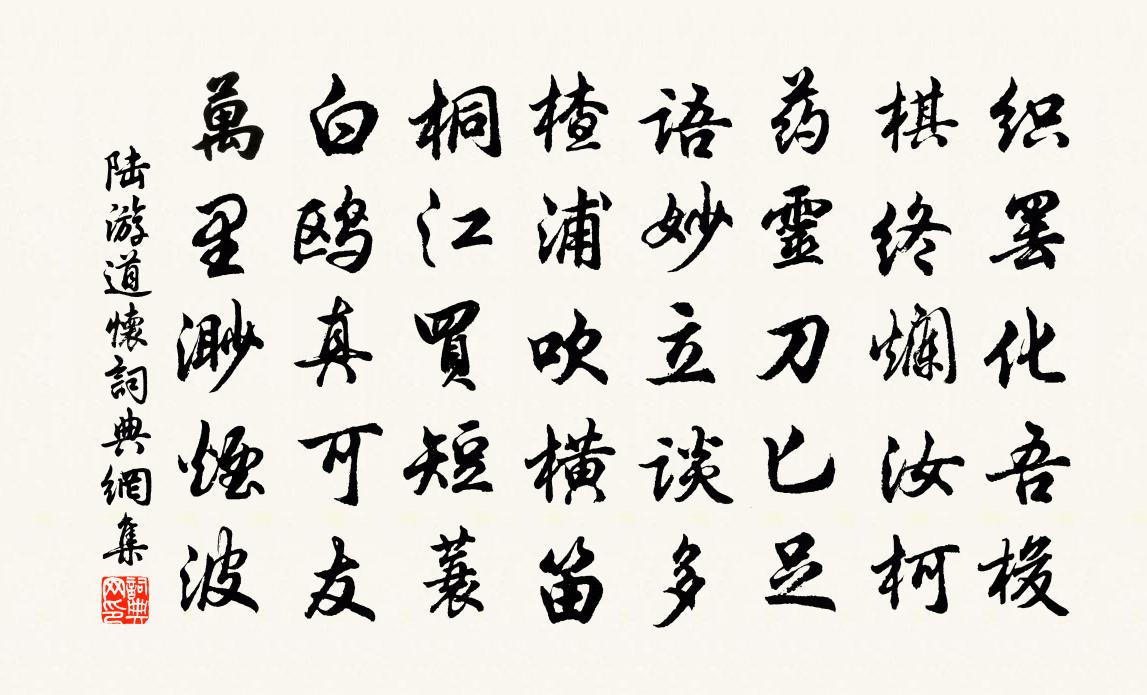 织罢化吾梭
棋终烂汝柯
药靈刀匕足
語妙立谈多
楂浦吹横笛
桐江買短蓑
白鸥真可友
萬里渺煙波
陆游道懷詞典網集
詞典网印